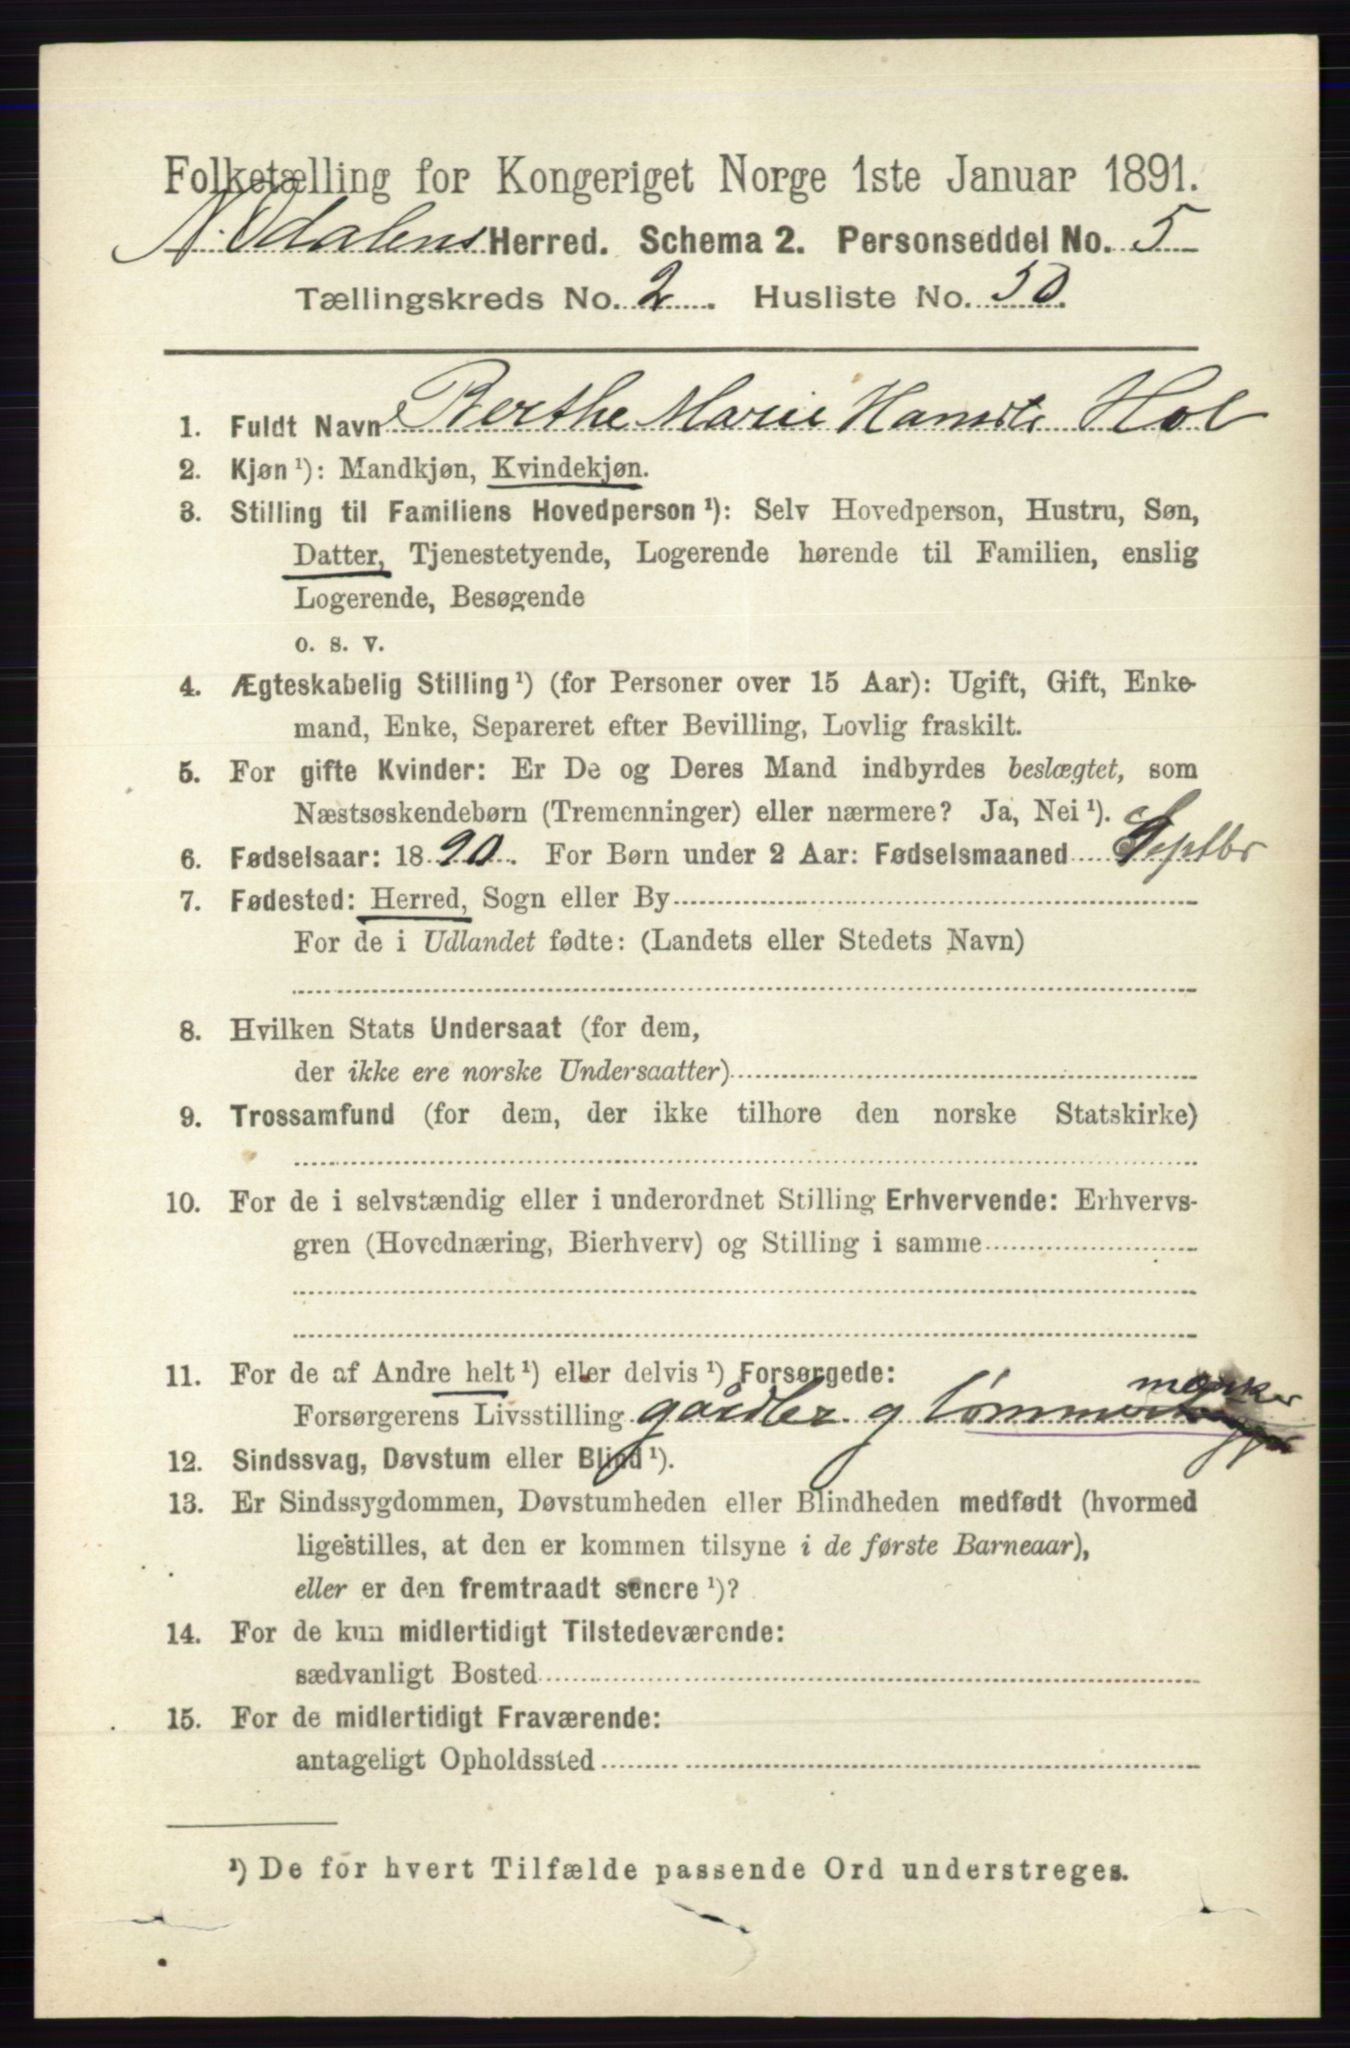 Folketælling for Kongeriget Norge 1ste Januar 1891.
N. Odalens Herred. Schema 2. Personseddel No. 5
Tællingskreds No. 2. Husliste No. 50.
1. Fuldt Navn Berthe Marie Hansdt. Hol
2. Kjøn ¹): Mandkjøn, Kvindekjøn.
3. Stilling til Familiens Hovedperson ¹): Selv Hovedperson, Hustru, Søn,
Datter, Tjenestetyende, Logerende hørende til Familien, enslig
Logerende, Besøgende
o. s. v.
4. Ægteskabelig Stilling ¹) (for Personer over 15 Aar): Ugift, Gift, Enke-
mand, Enke, Separeret efter Bevilling, Lovlig fraskilt.
5. For gifte Kvinder: Er De og Deres Mand indbyrdes beslægtet, som
Næstsøskendebørn (Tremenninger) eller nærmere? Ja, Nei ¹).
6. Fødselsaar: 1890. For Børn under 2 Aar: Fødselsmaaned Septbr
7. Fødested: Herred, Sogn eller By
For de i Udlandet fødte: (Landets eller Stedets Navn)
8. Hvilken Stats Undersaat (for dem,
der ikke ere norske Undersaatter)
9. Trossamfund (for dem, der ikke tilhøre den norske Statskirke)
10. For de i selvstændig eller i underordnet Stilling Erhvervende: Erhvervs-
gren (Hovednæring, Bierhverv) og Stilling i samme
11. For de af Andre helt ¹) eller delvis ¹) Forsørgede:
Forsørgerens Livsstilling gårdbr. og tømmermerker
12. Sindssvag, Døvstum eller Blind ¹).
13. Er Sindssygdommen, Døvstumheden eller Blindheden medfødt (hvormed
ligestilles, at den er kommen tilsyne i de første Barneaar),
eller er den fremtraadt senere ¹)?
14. For de kun midlertidigt Tilstedeværende:
sædvanligt Bosted
15. For de midlertidigt Fraværende:
antageligt Opholdssted
¹) De for hvert Tilfælde passende Ord understreges.